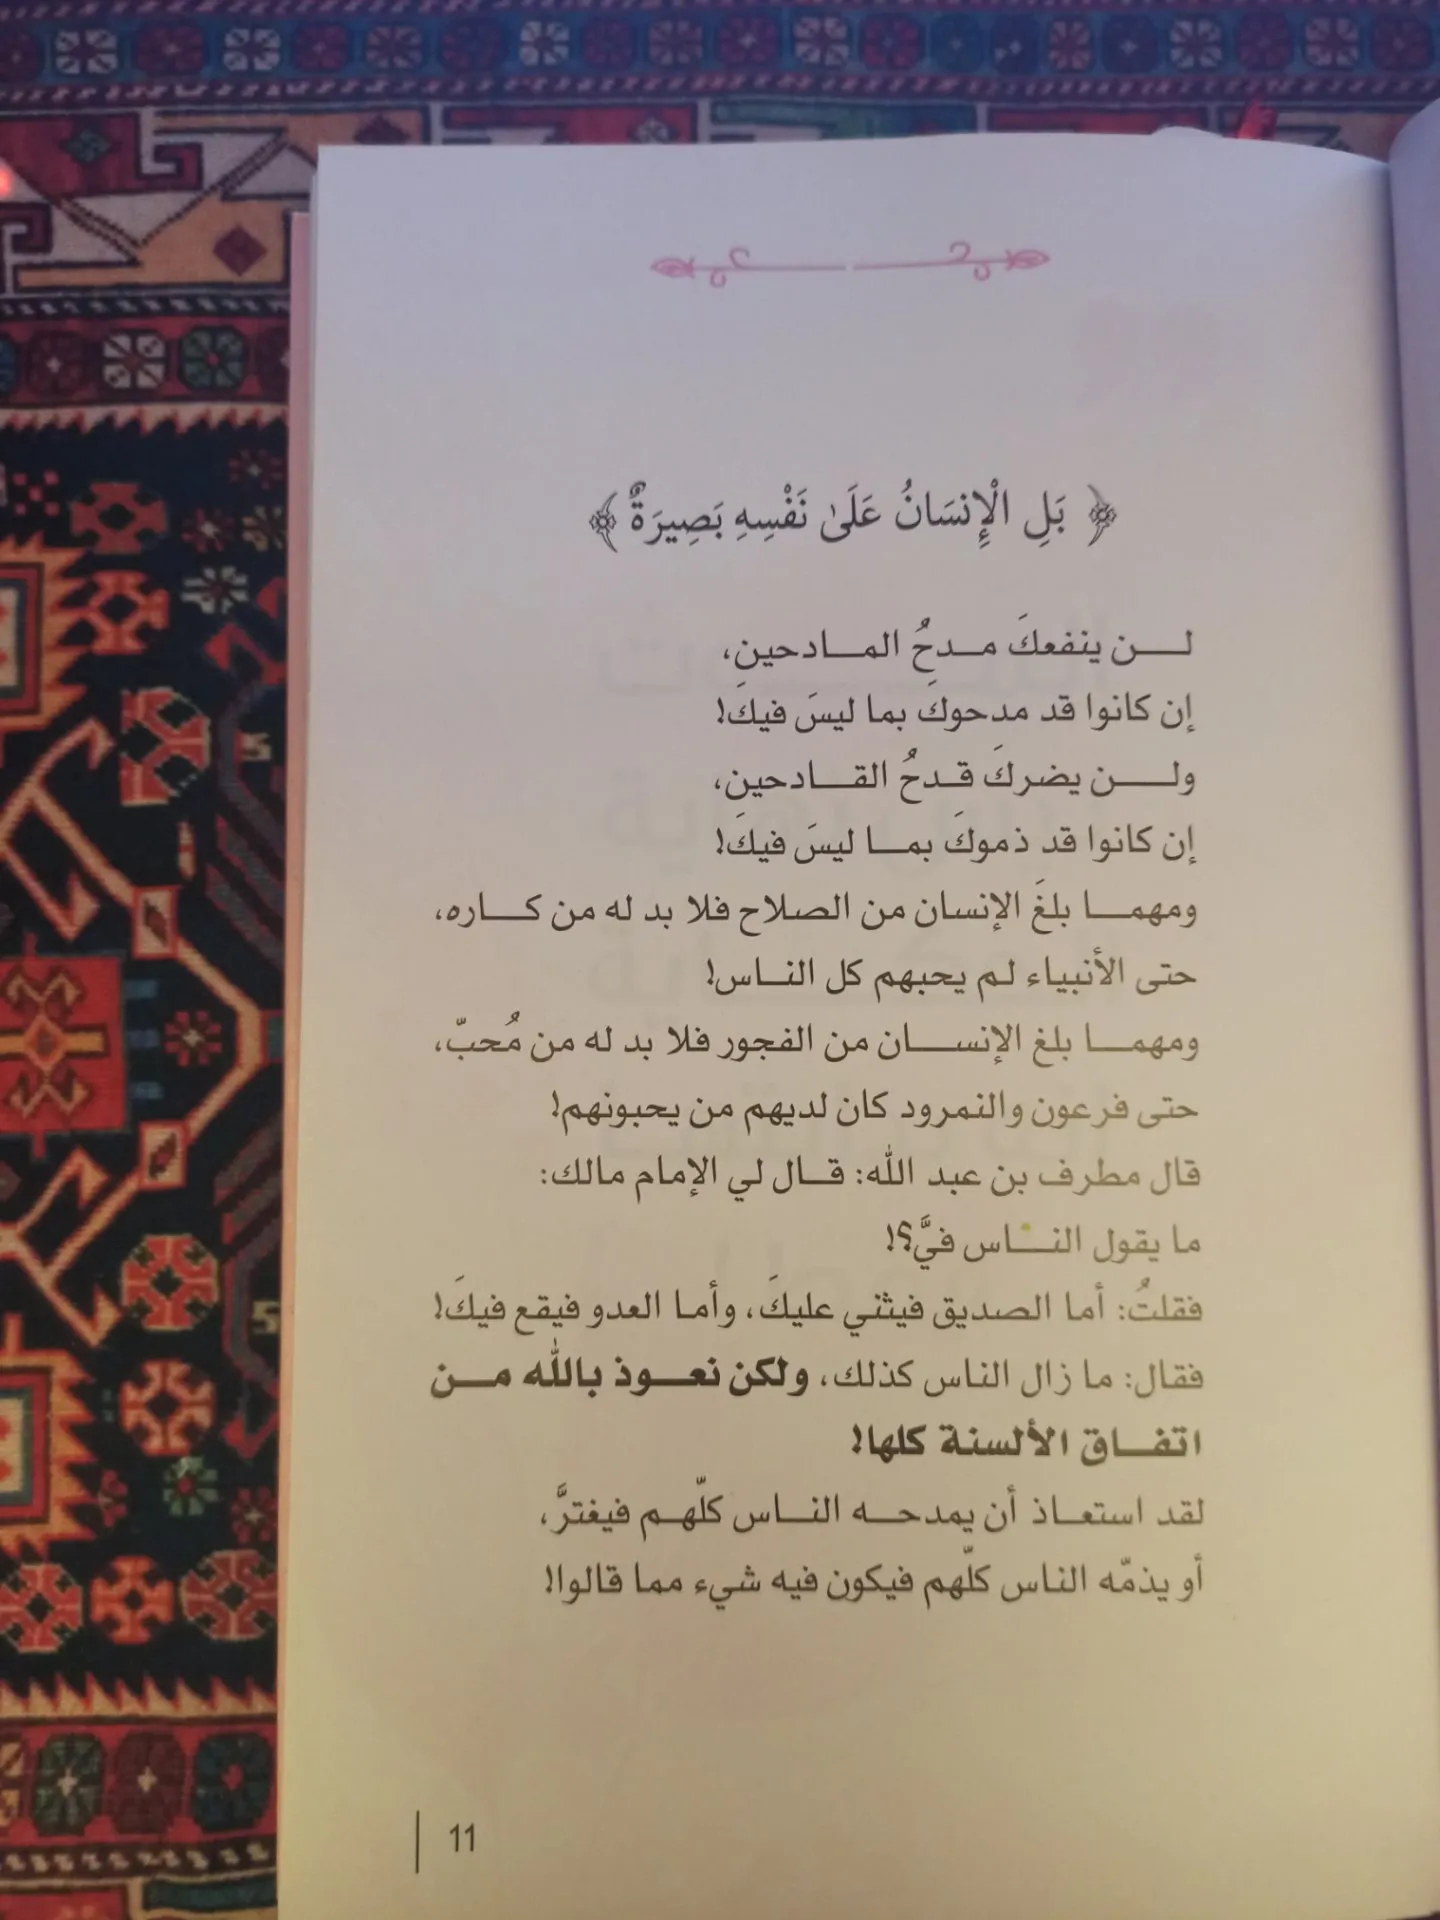 ﴿ بَلِ الْإِنسَانُ عَلَىٰ نَفْسِهِ بَصِيرَةٌ ﴾
لن ينفعكَ مدحُ المادحينِ،
إن كانوا قد مدحوكَ بما ليسَ فيكَ!
ولن يضركَ قدحُ القادحينِ،
إن كانوا قد ذموكَ بما ليسَ فيكَ!
ومهما بلغَ الإنسان من الصلاح فلا بد له من كاره،
حتى الأنبياء لم يحبهم كل الناس!
ومهما بلغ الإنسان من الفجور فلا بد له من مُحبّ،
حتى فرعون والنمرود كان لديهم من يحبونهم!
قال مطرف بن عبد الله: قال لي الإمام مالك:
ما يقول الناس فيَّ؟!
فقلتُ: أما الصديق فيثني عليكَ، وأما العدو فيقع فيكَ!
فقال: ما زال الناس كذلك، ولكن نعوذ بالله من
اتفاق الألسنة كلها!
لقد استعاذ أن يمدحه الناس كلّهم فيغترَّ،
أو يذمّه الناس كلّهم فيكون فيه شيء مما قالوا!
11